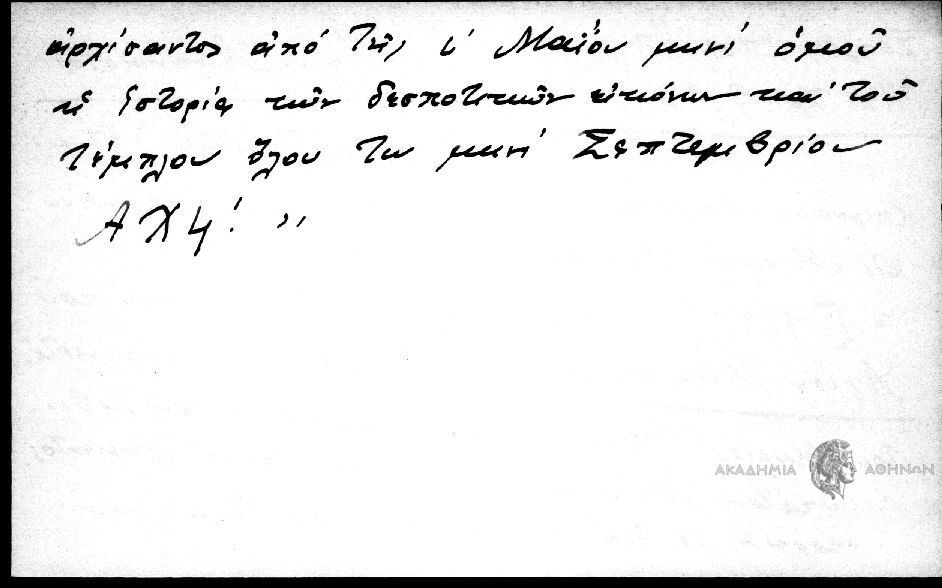 ἀρχίσαντος ἀπό τῆς ι´ Μαΐου μηνί ὁμοῦ
ἡ ἱστορία τῶν δεσποτικῶν εἰκόνων καί τοῦ
τέμπλου ὅλου τω μηνί Σεπτεμβρίου
ΑΧϞ! ,,
ΑΚΑΔΗΜΙΑ ΑΘΗΝΩΝ